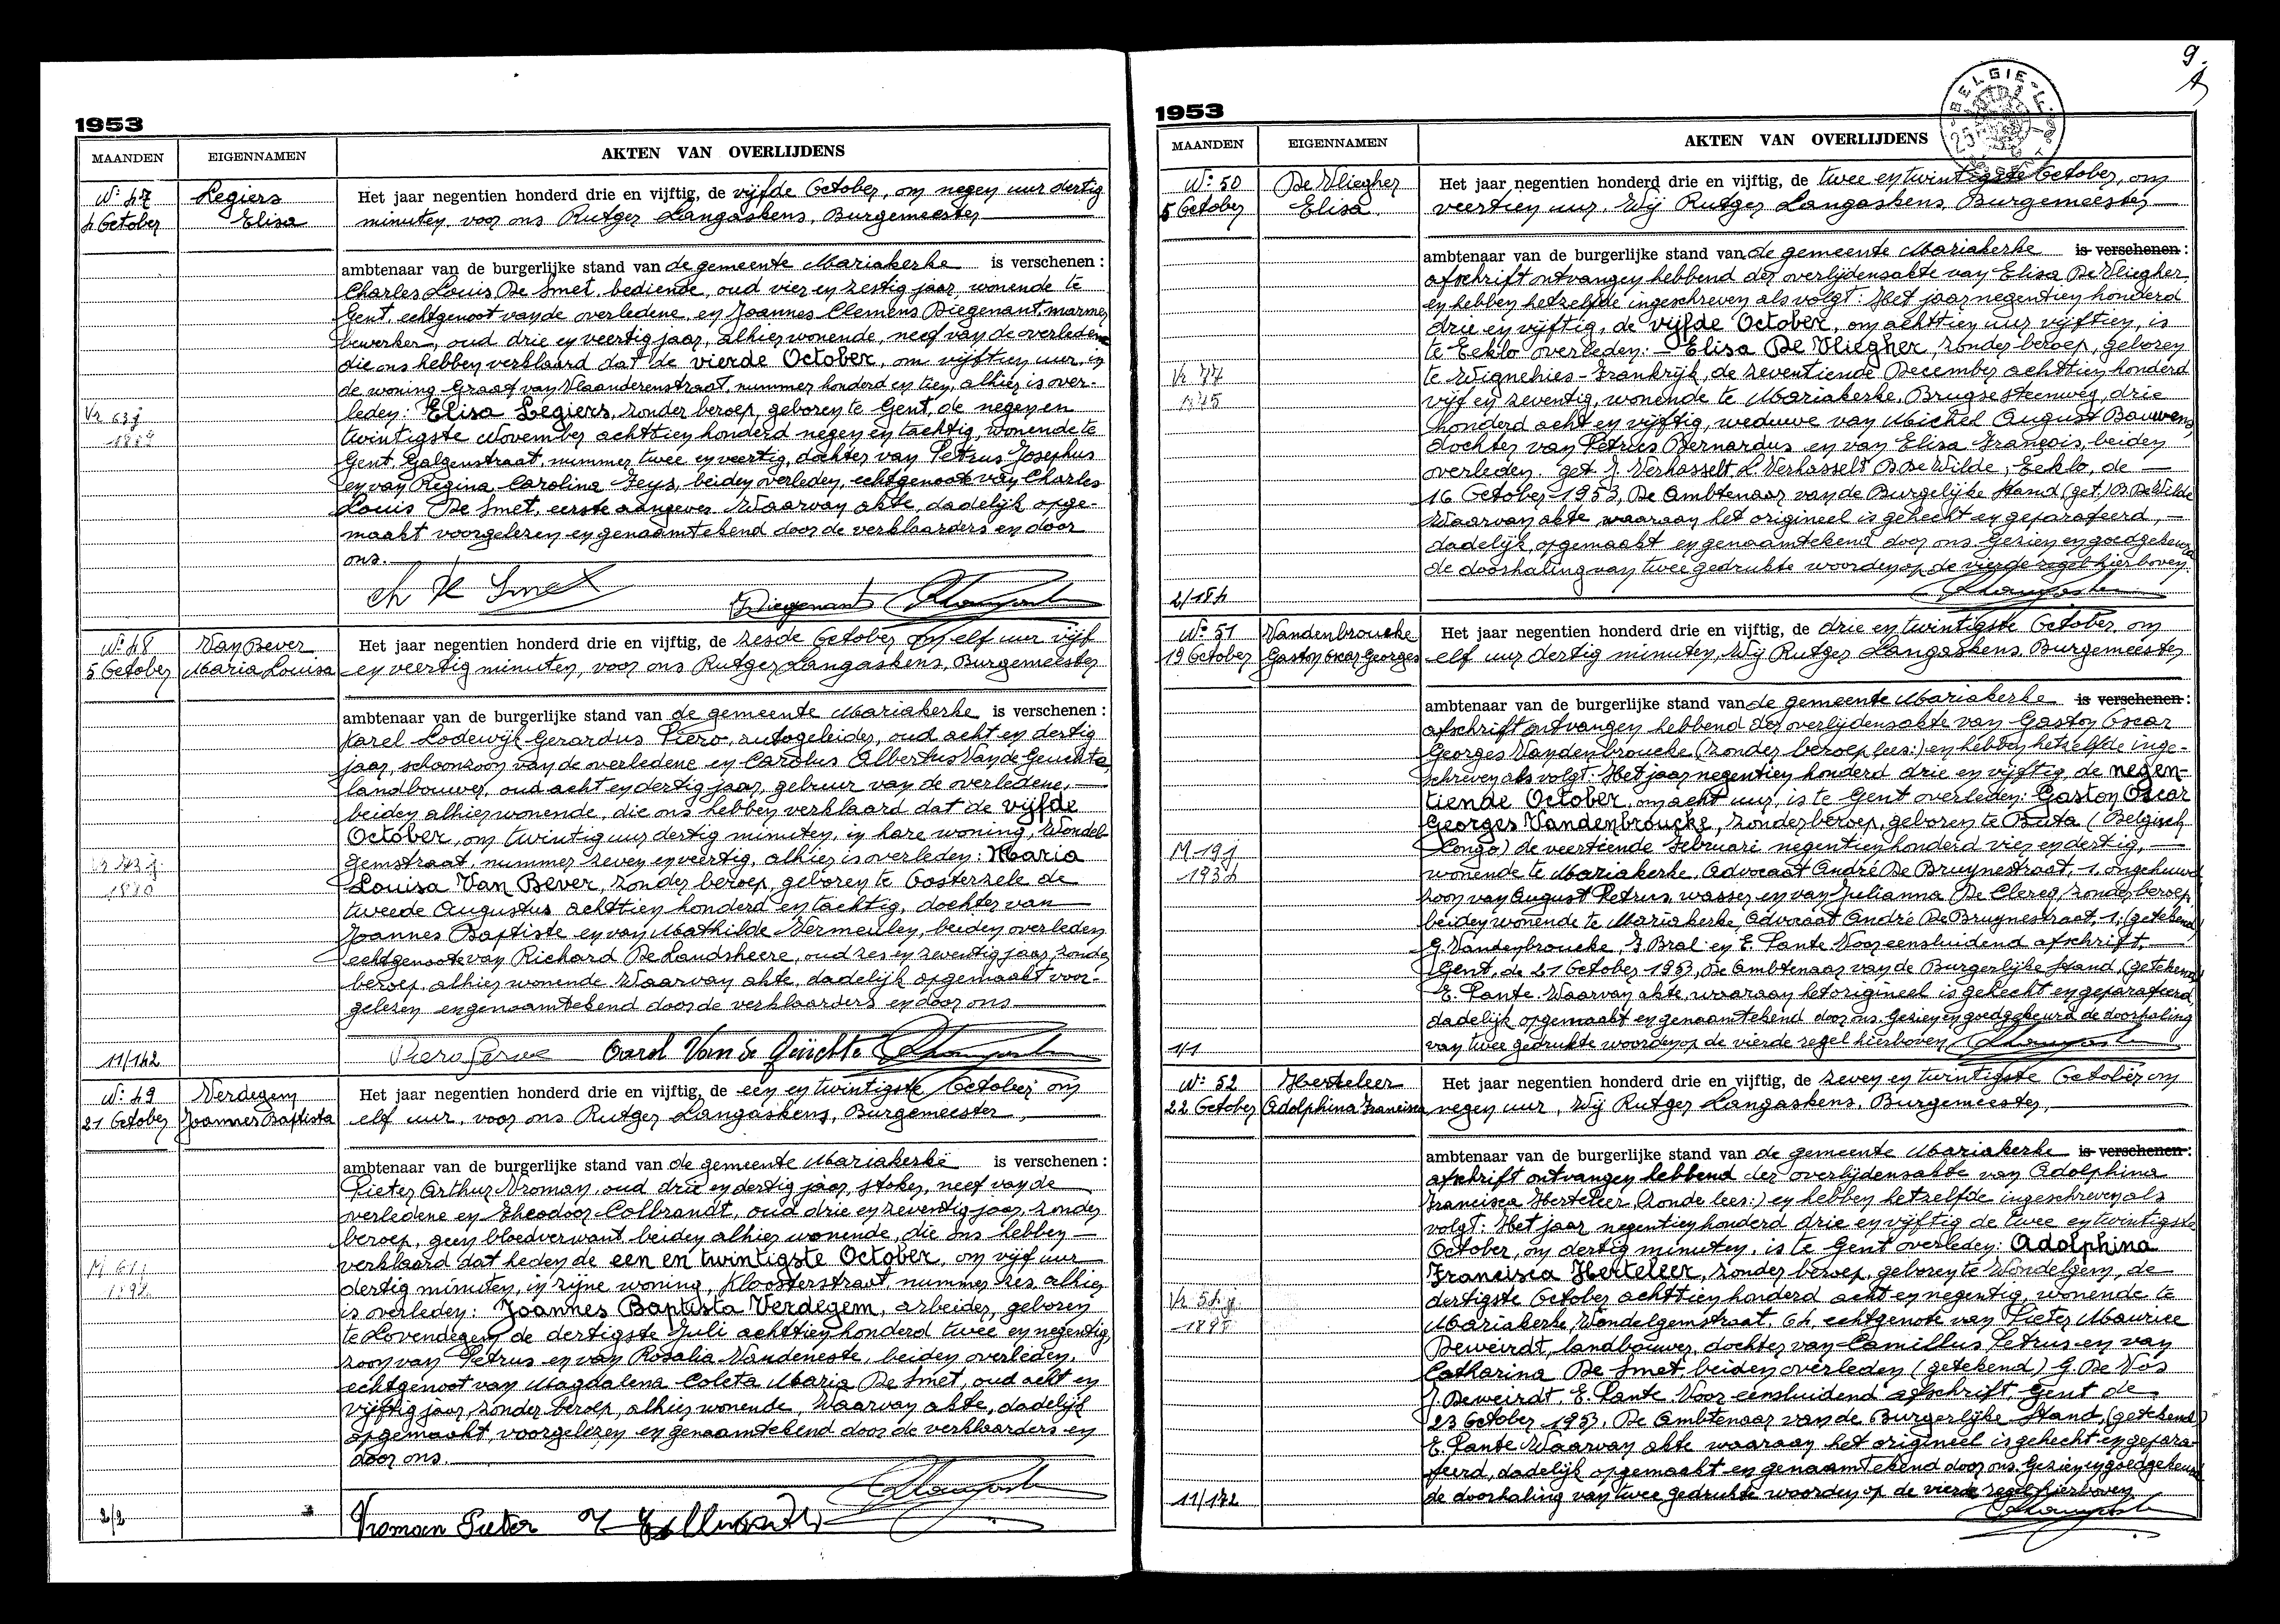 1953
MAANDEN
EIGENNAMEN
AKTEN VAN OVERLIJDENS
N° 47
4 October
Legiers
Elisa
Het jaar negentien honderd drie en vijftig, de vijfde October, om negen uur dertig
minuten, voor ons Rutger Langaskens, Burgemeester
ambtenaar van de burgerlijke stand van de gemeente Mariakerke is verschenen :
Charles Louis De Smet, bediende, oud vier en zestig jaar, wonende te
Gent, echtgenoot van de overledene, en Joannes Clemens Diegenant, marmer
bewerker, oud drie en veertig jaar, alhier wonende, neef van de overledene
die ons hebben verklaard dat de vierde October, om vijftien uur, in
de woning Graaf van Vlaanderenstraat, nummer honderd en tien, alhier is over-
leden: Elisa Legiers, zonder beroep, geboren te Gent, de negen en
Vr 63 j
twintigste November achttien honderd negen en tachtig, wonende te
Gent, Galgenstraat, nummer twee en veertig, dochter van Petrus Josephus
en van Regina Carolina Feys, beiden overleden, echtgenoote van Charles
Louis De Smet, eerste aangever. Waarvan akte, dadelijk opge-
maakt voorgelezen en genaamtekend door de verklaarders en door
ons.
Ch De Smet
Diegenant
N° 48
5 October
Van Bever
Maria Louisa
Het jaar negentien honderd drie en vijftig, de zesde October om elf uur vijf
en veertig minuten, voor ons Rutger Langaskens, Burgemeester
ambtenaar van de burgerlijke stand van de gemeente Mariakerke is verschenen :
Karel Lodewijk Gerardus Piero, autogeleider, oud acht en dertig
jaar, schoonzoon van de overledene en Carolus Albertus Van de Geuchte,
landbouwer, oud acht en dertig jaar, gebuur van de overledene,
beiden alhier wonende, die ons hebben verklaard dat de vijfde
October, om twintig uur dertig minuten, in hare woning, Wondel-
gemstraat, nummer zeven en veertig, alhier is overleden: Maria
Louisa Van Bever, zonder beroep, geboren te Oosterzele de
1880
tweede Augustus achttien honderd en tachtig, dochter van
Joannes Baptiste en van Mathilde Vermeulen, beiden overleden
echtgenoote van Richard De Landsheere, oud zes en zeventig jaar, zonder
beroep, alhier wonende. Waarvan akte, dadelijk opgemaakt voor-
gelezen en genaamtekend door de verklaarders en door ons
11/142
Carel Van de Geuchte
N° 49
21 October
Verdegem
Joannes Baptista
Het jaar negentien honderd drie en vijftig, de een en twintigste October om
elf uur, voor ons Rutger Langaskens, Burgemeester,
ambtenaar van de burgerlijke stand van de gemeente Mariakerke is verschenen :
Pieter Arthur Vroman, oud drie en dertig jaar, stoker, neef van de
overledene en Theodoor Colbrandt, oud drie en zeventig jaar, zonder
beroep, geen bloedverwant, beiden alhier wonende, die ons hebben
verklaard dat heden de een en twintigste October, om vijf uur
M 61 j
dertig minuten, in zijne woning, Kloosterstraat, nummer zes, alhier
is overleden: Joannes Baptista Verdegem, arbeider, geboren
te Lovendegem de dertigste Juli achttien honderd twee en negentig,
zoon van Petrus en van Rosalia Vandeneste, beiden overleden,
echtgenoot van Magdalena Coleta Maria De Smet, oud acht en
vijftig jaar, zonder beroep, alhier wonende. Waarvan akte, dadelijk
opgemaakt, voorgelezen en genaamtekend door de verklaarders en
door ons.
2/2
Vroman Pieter
9.
1953
MAANDEN
EIGENNAMEN
AKTEN VAN OVERLIJDENS
BELGIE
N° 50
5 October
De Vliegher
Elisa
Het jaar negentien honderd drie en vijftig, de twee en twintigste October, om
veertien uur. Wij Rutger Langaskens, Burgemeester
ambtenaar van de burgerlijke stand van de gemeente Mariakerke is verschenen :
afschrift ontvangen hebbend der overlijdensakte van Elisa De Vliegher
en hebben hetzelfde ingeschreven als volgt: Het jaar negentien honderd
drie en vijftig, de vijfde October, om achttien uur vijftien, is
te Eeklo overleden: Elisa De Vliegher, zonder beroep, geboren
Vr 77
te Wignehies - Frankrijk, de zeventiende December achttien honderd
vijf en zeventig, wonende te Mariakerke, Brugsesteenweg, drie
honderd acht en vijftig, weduwe van Michel August Bauwens,
dochter van Petrus Bernardus en van Elisa François, beiden
overleden. get J. Verhasselt L. Verhasselt B De Wilde, Eeklo, de
16 October 1953, De Ambtenaar van de Burgelijke Stand (get.) B De Wilde
Waarvan akte waaraan het origineel is gehecht en geparafeerd,
dadelijk opgemaakt en genaamtekend door ons. Gezien en goedgekeurd
de doorhaling van twee gedrukte woorden op de vierde regel hierboven.
2/184
N° 51
19 October
Vandenbroucke
Gaston Oscar Georges
Het jaar negentien honderd drie en vijftig, de drie en twintigste October, om
elf uur dertig minuten, Wij Rutger Langaskens, Burgemeester
ambtenaar van de burgerlijke stand van de gemeente Mariakerke is verschenen :
afschrift ontvangen hebbend der overlijdensakte van Gaston Oscar
Georges Vandenbroucke (zonder beroep, lees:) en hebben hetzelfde inge-
schreven als volgt: Het jaar negentien honderd drie en vijftig, de negen-
tiende October, om acht uur, is te Gent overleden: Gaston Oscar
Georges Vandenbroucke, zonder beroep, geboren te Buta (Belgisch
M 19 j
Congo) de veertiende Februari negentien honderd vier en dertig,
1934
wonende te Mariakerke, Advocaat André De Bruynestraat, 1, ongehuwd
zoon van August Petrus, wasser en van Julianna De Clercq, zonder beroep,
beiden wonende te Mariakerke, Advocaat André De Bruynestraat, 1, (getekend)
G. Vandenbroucke, J. Bral en E. Lante. Voor eensluidend afschrift,
Gent, de 21 October 1953, De Ambtenaar van de Burgerlijke Stand, (getekend)
E. Lante. Waarvan akte, waaraan het origineel is gehecht en geparafeerd,
dadelijk opgemaakt en genaamtekend door ons. Gezien en goedgekeurd de doorhaling
van twee gedrukte woorden op de vierde regel hierboven
1/1
N° 52
22 October
Herteleer
Adolphina Francisca
Het jaar negentien honderd drie en vijftig, de zeven en twintigste October om
negen uur, Wij Rutger Langaskens, Burgemeester,
ambtenaar van de burgerlijke stand van de gemeente Mariakerke is verschenen :
afschrift ontvangen hebbend der overlijdensakte van Adolphina
Francisca Herteleer (zonde lees:) en hebben hetzelfde ingeschreven als
volgt: Het jaar negentien honderd drie en vijftig de twee en twintigste
October, om dertig minuten, is te Gent overleden: Adolphina
Francisca Herteleer, zonder beroep, geboren te Wondelgem, de
Vr 54 j
dertigste October achttien honderd acht en negentig, wonende te
1898
Mariakerke, Wondelgemstraat, 64, echtgenote van Pieter Maurice
Deweirdt, landbouwer, dochter van Camillus Petrus en van
Catharina De Smet, beiden overleden (getekend) G. De Vos
J. Deweirdt. E. Lante. Voor eensluidend afschrift, Gent de
23 October 1953. De Ambtenaar van de Burgerlijke Stand, (getekend)
E. Lante. Waarvan akte waaraan het origineel is gehecht en gepara-
feerd, dadelijk opgemaakt en genaamtekend door ons. Gezien en goedgekeurd
de doorhaling van twee gedrukte woorden op de vierde regel hierboven
11/172